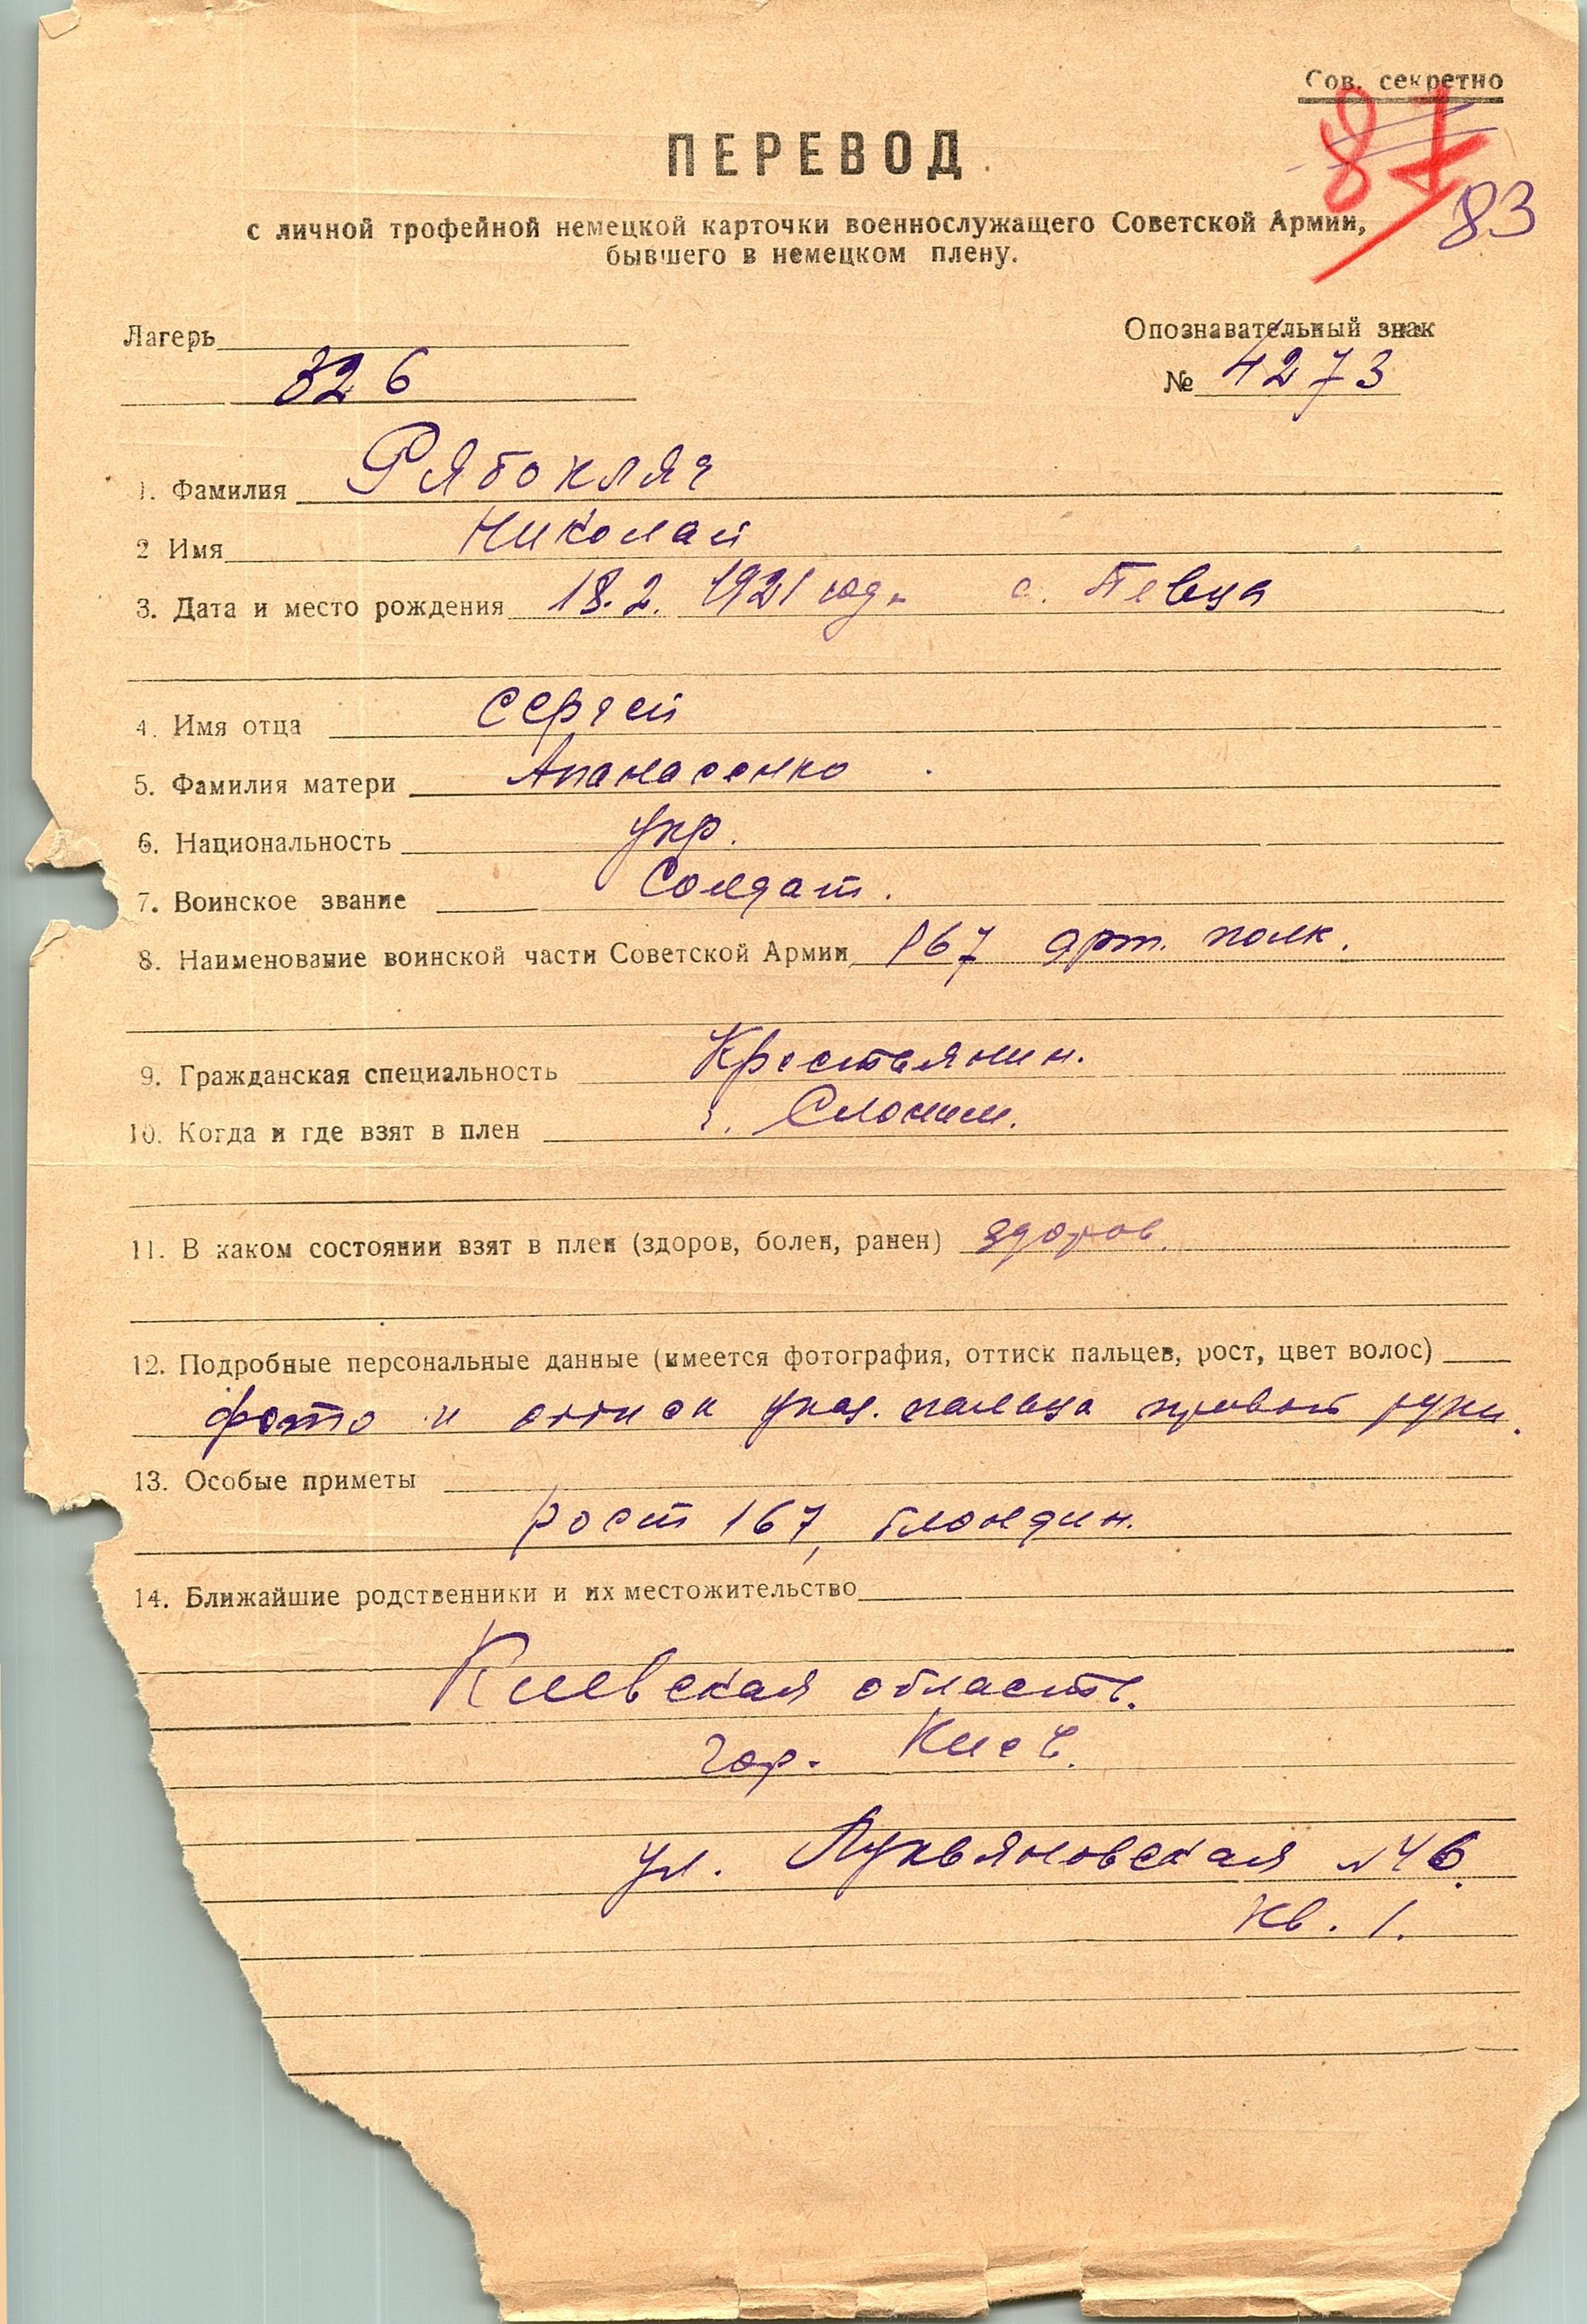 Сов. секретно
87
83
ПЕРЕВОД
с личной трофейной немецкой карточки военнослужащего Советской Армии,
бывшего в немецком плену.
Лагерь
Опознавательный знак
326
№ 4273
1. Фамилия Рябокляч
2 Имя Николай
3. Дата и место рождения 18.2. 1921 год. с. Певца
4. Имя отца Сергей
5. Фамилия матери Апанасенко
6. Национальность укр.
7. Воинское звание Солдат.
8. Наименование воинской части Советской Армии 167 арт. полк.
9. Гражданская специальность Крестьянин.
10. Когда и где взят в плен г. Слоним.
11. В каком состоянии взят в плен (здоров, болен, ранен) здоров.
12. Подробные персональные данные (имеется фотография, оттиск пальцев, рост, цвет волос)
фото и оттиск указ. пальца правой руки.
13. Особые приметы
рост 167, блондин.
14. Ближайшие родственники и их местожительство
Киевская область.
гор. Киев.
ул. Лукьяновская №46.
кв. 1.